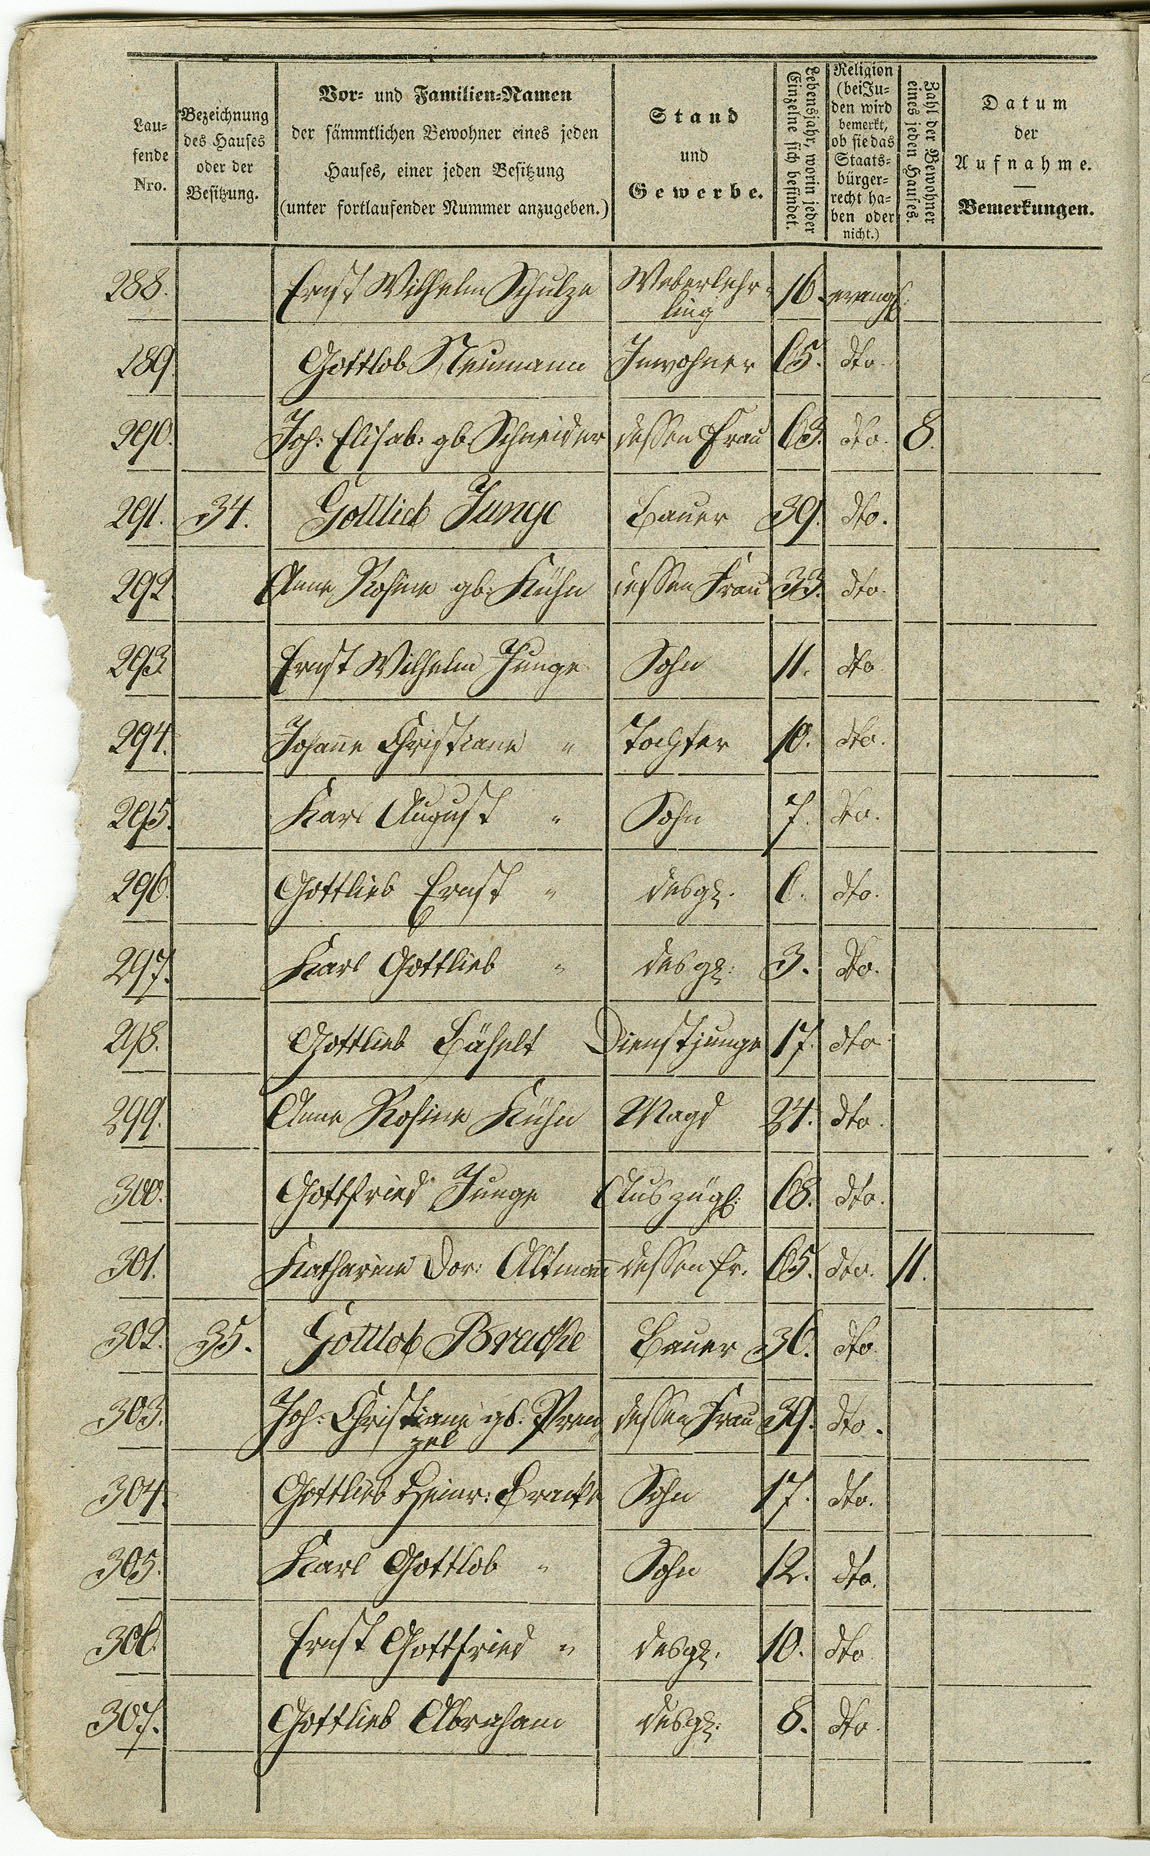 Lau-
fende
Nro.
Bezeichnung
des Hauses
oder der
Besitzung.
Vor- und Familien-Namen
der sämmtlichen Bewohner eines jeden
Hauses, einer jeden Besitzung
(unter fortlaufender Nummer anzugeben.)
Stand
und
Gewerbe.
Lebensjahr, worin jeder
Einzelne sich befindet.
Religion
(bei Ju-
den wird
bemerkt,
ob sie das
Staats-
bürger-
recht ha-
ben oder
nicht.)
Zahl der Bewohner
eines jeden Hauses.
Datum
der
Aufnahme.
Bemerkungen.
288. Ernst Wilhelm Schulze Weberlehr- 16. evangl.
ling
289. Gottlob Neumann Inwohner 65. dto.
290. Joh: Elisab: gb. Schneider dessen Frau 63. dto. 8.
291. 34. Gottlieb Junge Bauer 39. dto.
292 Anne Rosine gb. Kühn dessen Frau 33. dto.
293 Ernst Wilhelm Junge Sohn 11. dto
294. Johanne Christiane " Tochter 10. dto.
295. Karl August " Sohn 7. dto.
296 Gottlieb Ernst " desgl. 6. dto.
297. Karl Gottlieb " desgl: 3. dto.
298. Gottlieb Dienstjunge 17. dto
299. Anne Rosine Kühn Magd 24. dto.
300. Gottfried Junge Auszügl: 68. dto.
301. Katharine Dor: Altmann dessen Fr. 65. dto. 11.
302. 35. Gottlob Bracke Bauer 36. dto
303. Joh: Christiane gb: Pren dessen Frau 39. dto.
zel
304. Gottlieb Heinr: Bracke Sohn 17. dto.
305. Karl Gottlob " Sohn 12. dto.
306. Ernst Gottfried " desgl. 10. dto
307. Gottlieb Abraham desgl: 8. dto.